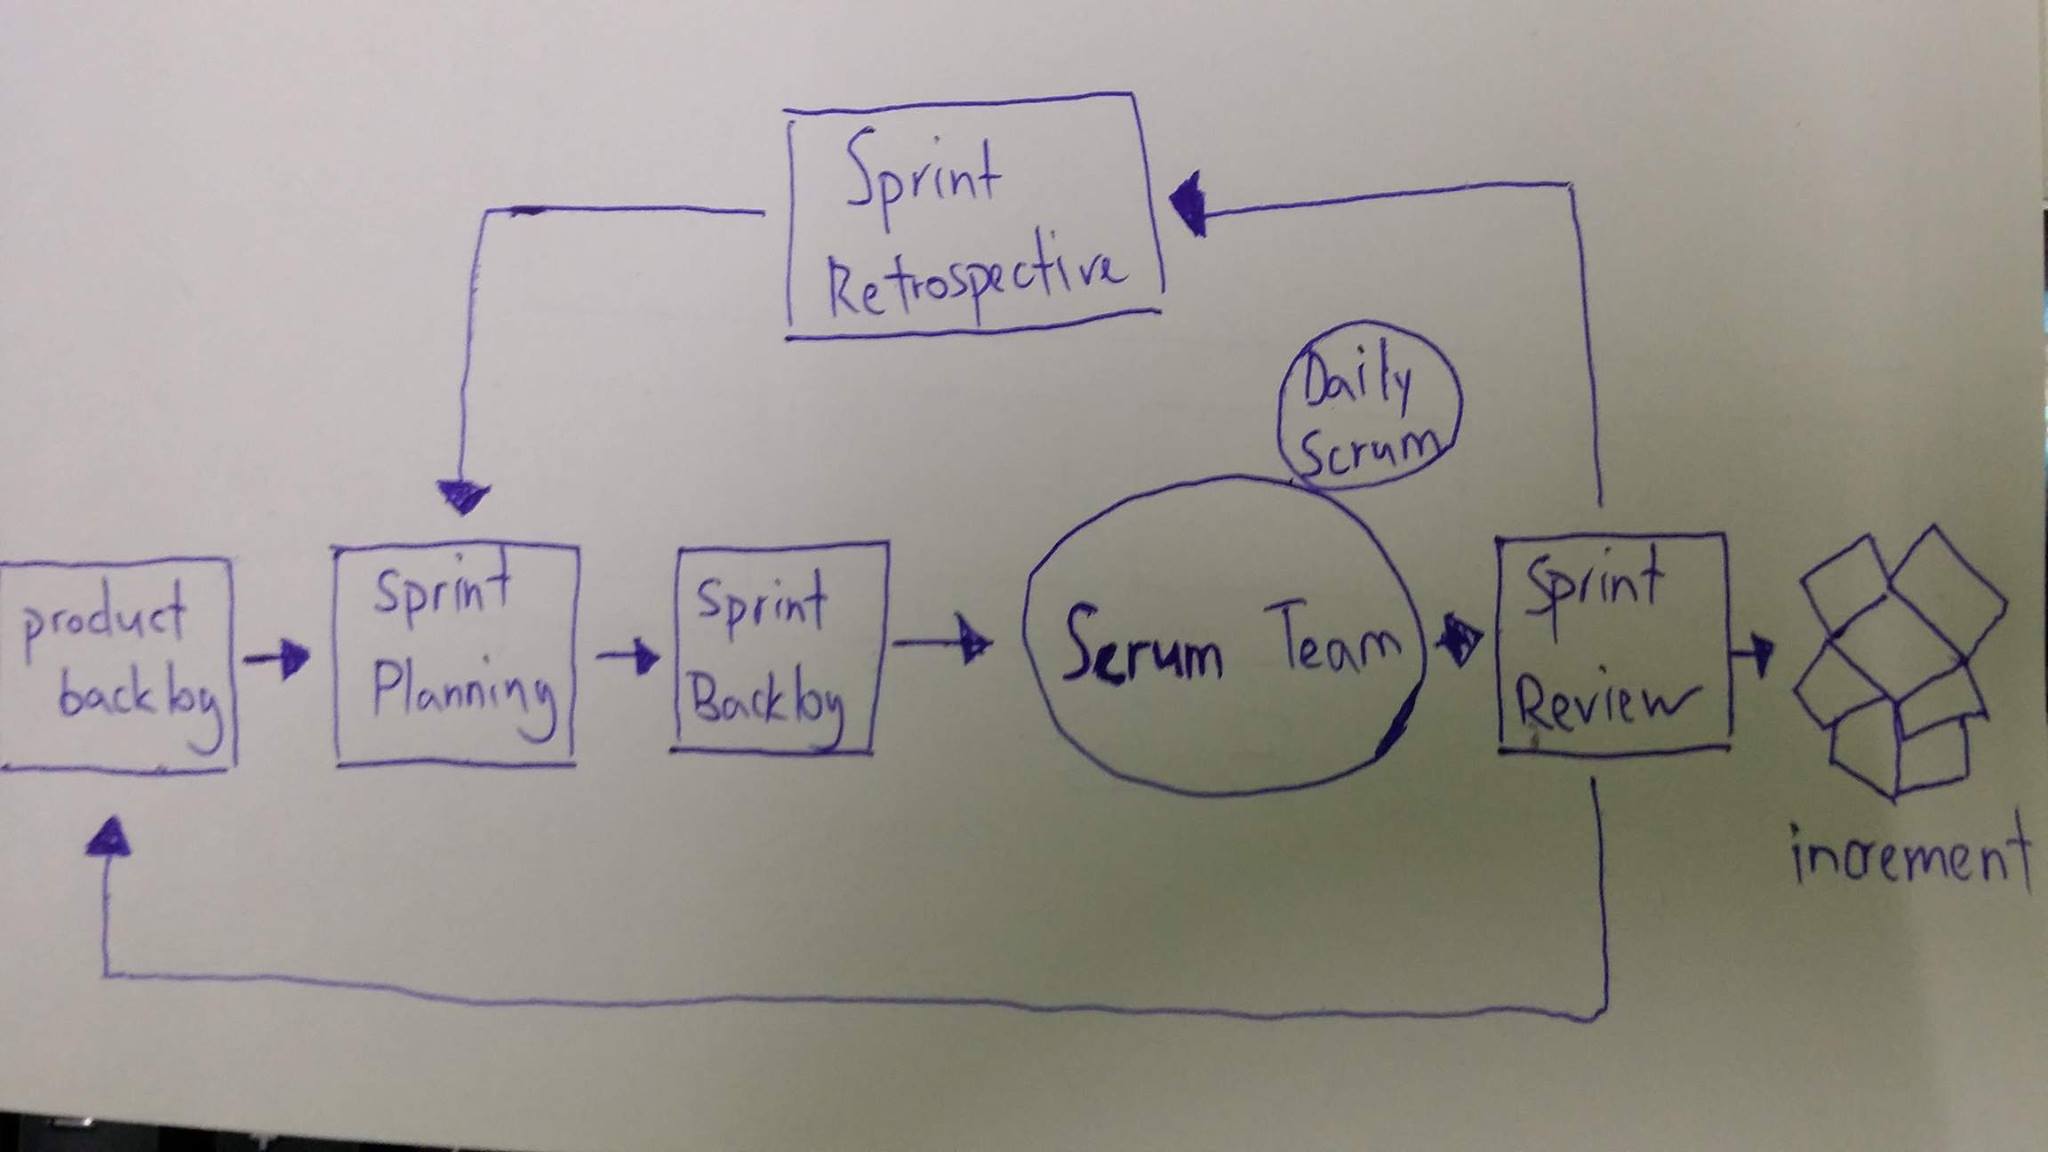 Sprint
Retrospective
Daily
Scrum
product
backlog
Sprint
Planning
Sprint
Backlog
Scrum Team
Sprint
Review
increment